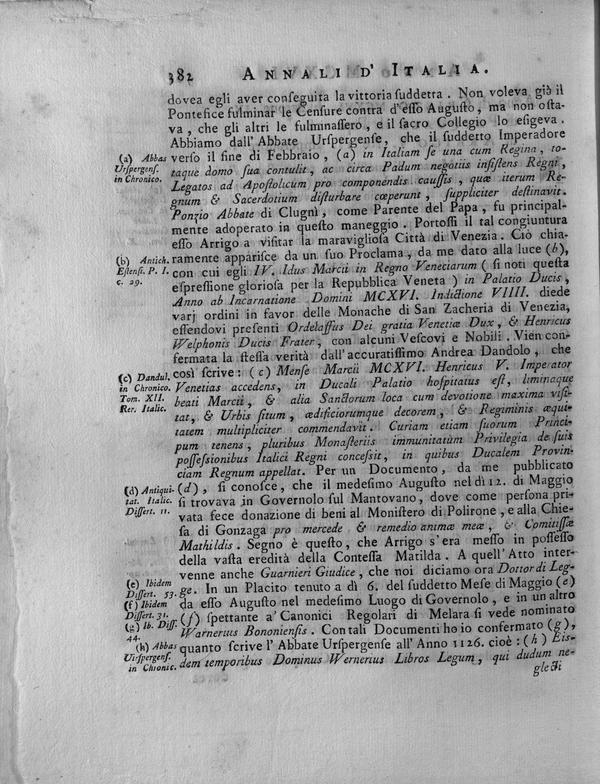 382 ANNALI D' ITALIA.
dovea egli aver conseguita la vittoria suddetta. Non voleva già il
Pontefice fulminar le Censure contra d'esso Augusto, ma non osta-
va, che gli altri le fulminassero, e il sacro Collegio lo esigeva.
Abbiamo dall' Abbate Urspergense, che il suddetto Imperadore
(a) Abbas
Urspergens.
in Chronico.
verso il fine di Febbraio, (a) in Italiam se una cum Regina, to-
taque domo sua contulit, ac circa Padum negotiis insistens Regni,
Legatos ad Apostolicum pro componendis caussis, quæ iterum Re-
gnum & Sacerdotium disturbare cœperunt, suppliciter destinavit.
Ponzio Abbate di Clugnì, come Parente del Papa, fu principal-
mente adoperato in questo maneggio. Portossi il tal congiuntura
esso Arrigo a visitar la maravigliosa Città di Venezia. Ciò chia-
(b) Antich.
Estensi. P. I.
c. 29.
ramente apparisce da un suo Proclama, da me dato alla luce (b),
con cui egli IV. Idus Marcii in Regno Veneciarum (si noti questa
espressione gloriosa per la Repubblica Veneta) in Palatio Ducis,
Anno ab Incarnatione Domini MCXVI. Indictione VIIII. diede
varj ordini in favor delle Monache di San Zacheria di Venezia,
essendovi presenti Ordelassus Dei gratia Venetiæ Dux, & Henricus
Welphonis Ducis Frater, con alcuni Vescovi e Nobili. Vien con-
fermata la stessa verità dall' accuratissimo Andrea Dandolo, che
(c) Dandul.
in Chronico.
Tom. XII.
Rer. Italic.
così scrive: (c) Mense Marcii MCXVI. Henricus V. Imperator
Venetias accedens, in Ducali Palatio hospitatus est, liminaque
beati Marcii, & alia Sanctorum loca cum devotione maxima visi-
tat, & Urbis situm, ædificiorumque decorem, & Regiminis æqui-
tatem multipliciter commendavit. Curiam etiam suorum Princi-
pum tenens, pluribus Monasteriis immunitatum Privilegia de suis
possessionibus Italici Regni concessit, in quibus Ducalem Provin-
ciam Regnum appellat. Per un Documento, da me pubblicato
(d) Antiqui-
tat. Italic.
Dissert. 11.
(d), si conosce, che il medesimo Augusto nel dì 12. di Maggio
si trovava in Governolo sul Mantovano, dove come persona pri-
vata fece donazione di beni al Monistero di Polirone, e alla Chie-
sa di Gonzaga pro mercede & remedio animæ meæ, & Comitissæ
Mathildis. Segno è questo, che Arrigo s'era messo in possesso
della vasta eredità della Contessa Matilda. A quell' Atto inter-
venne anche Guarnieri Giudice, che noi diciamo ora Dottor di Leg-
(e) Ibidem
Dissert. 53.
ge. In un Placito tenuto a dì 6. del suddetto Mese di Maggio (e)
(f) Ibidem
Dissert. 31.
da esso Augusto nel medesimo Luogo di Governolo, e in un altro
(f) spettante a' Canonici Regolari di Melara si vede nominato
(g) Ib. Diss.
44.
Warnerius Bononiensis. Con tali Documenti ho io confermato (g),
(h) Abbas
Urspergens.
in Chronic.
quanto scrive l' Abbate Urspergense all' Anno 1126. cioè: (h) Eis-
dem temporibus Dominus Wernerius Libros Legum, qui dudum ne-
glecti